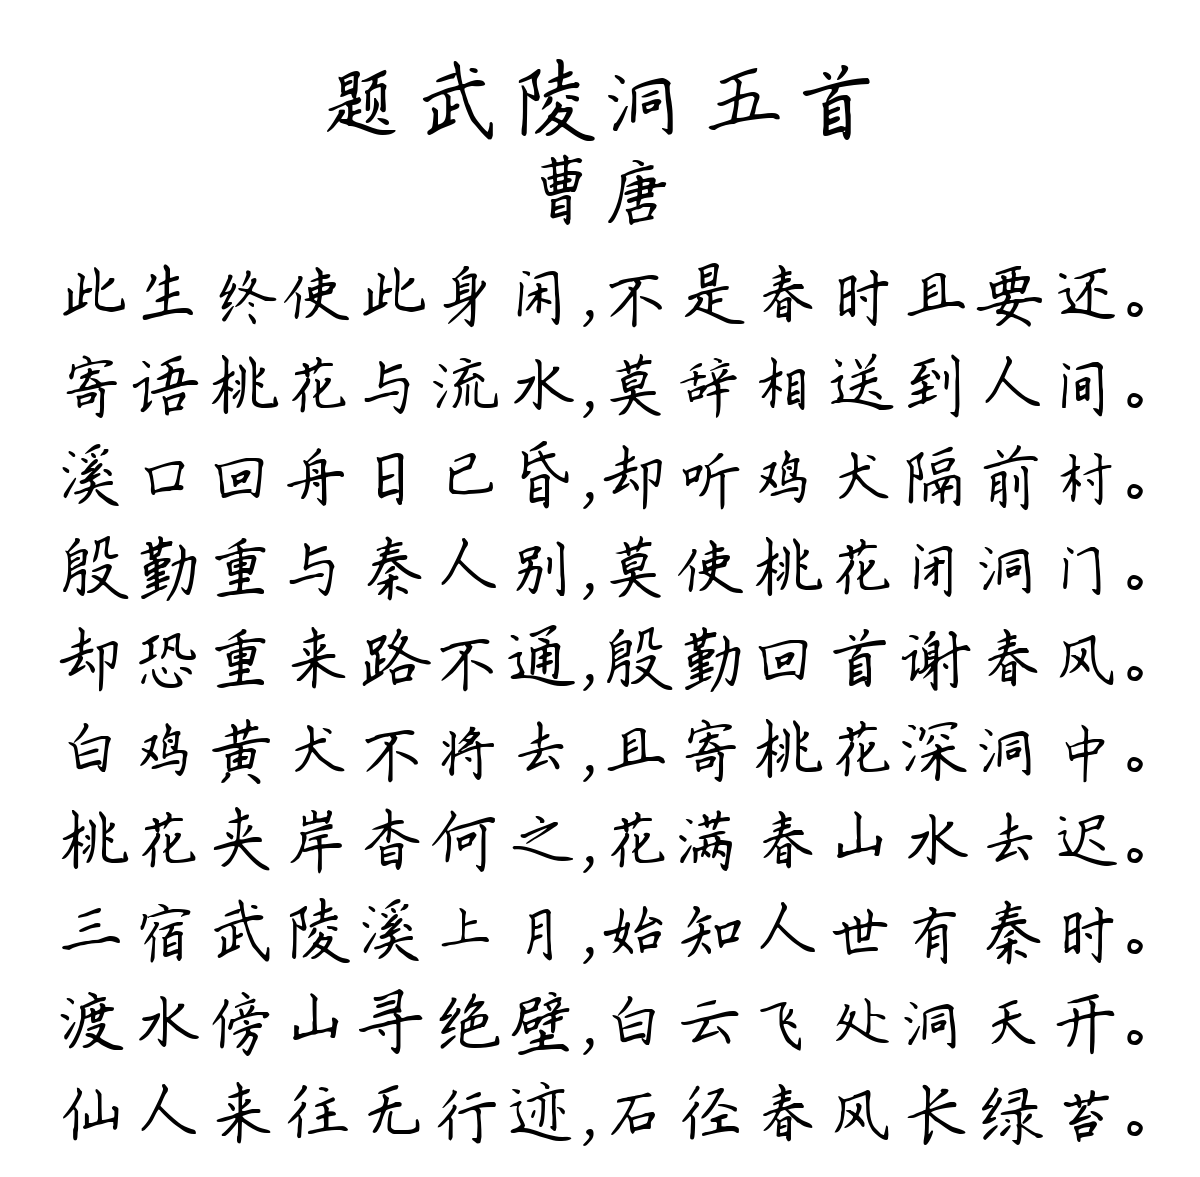 题武陵洞五首
曹唐
此生终使此身闲,不是春时且要还。
寄语桃花与流水,莫辞相送到人间。
溪口回舟日已昏,却听鸡犬隔前村。
殷勤重与秦人别,莫使桃花闭洞门。
却恐重来路不通,殷勤回首谢春风。
白鸡黄犬不将去,且寄桃花深洞中。
桃花夹岸杳何之,花满春山水去迟。
三宿武陵溪上月,始知人世有秦时。
渡水傍山寻绝壁,白云飞处洞天开。
仙人来往无行迹,石径春风长绿苔。